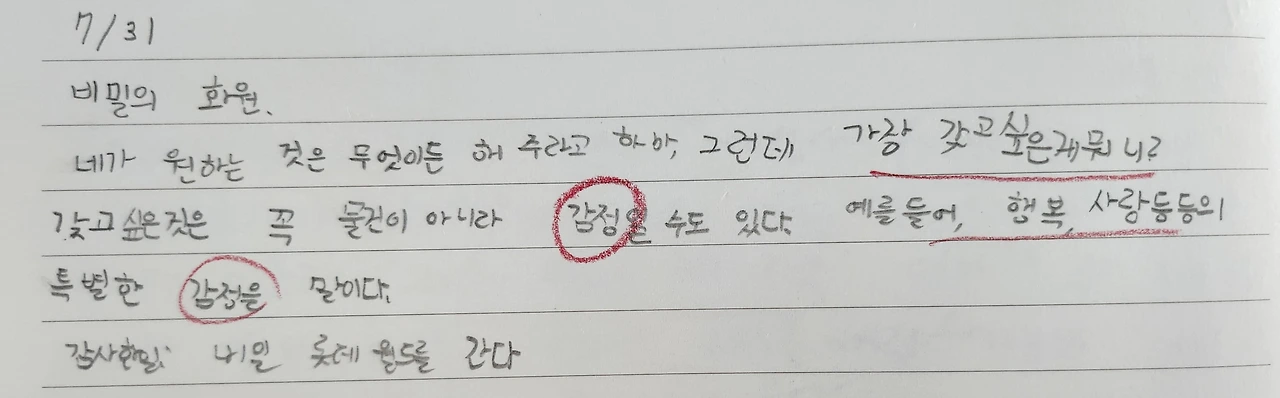 7/31
비밀의 화원.
네가 원하는 것은 무엇이든 해 주라고 하마, 그런데 가장 갖고싶은게뭐니?
갖고싶은것은 꼭 물건이 아니라 감정일 수도 있다. 예를들어, 행복, 사랑등등의
특별한 감정을 말이다.
감사한일: 내일 롯데월드를 간다